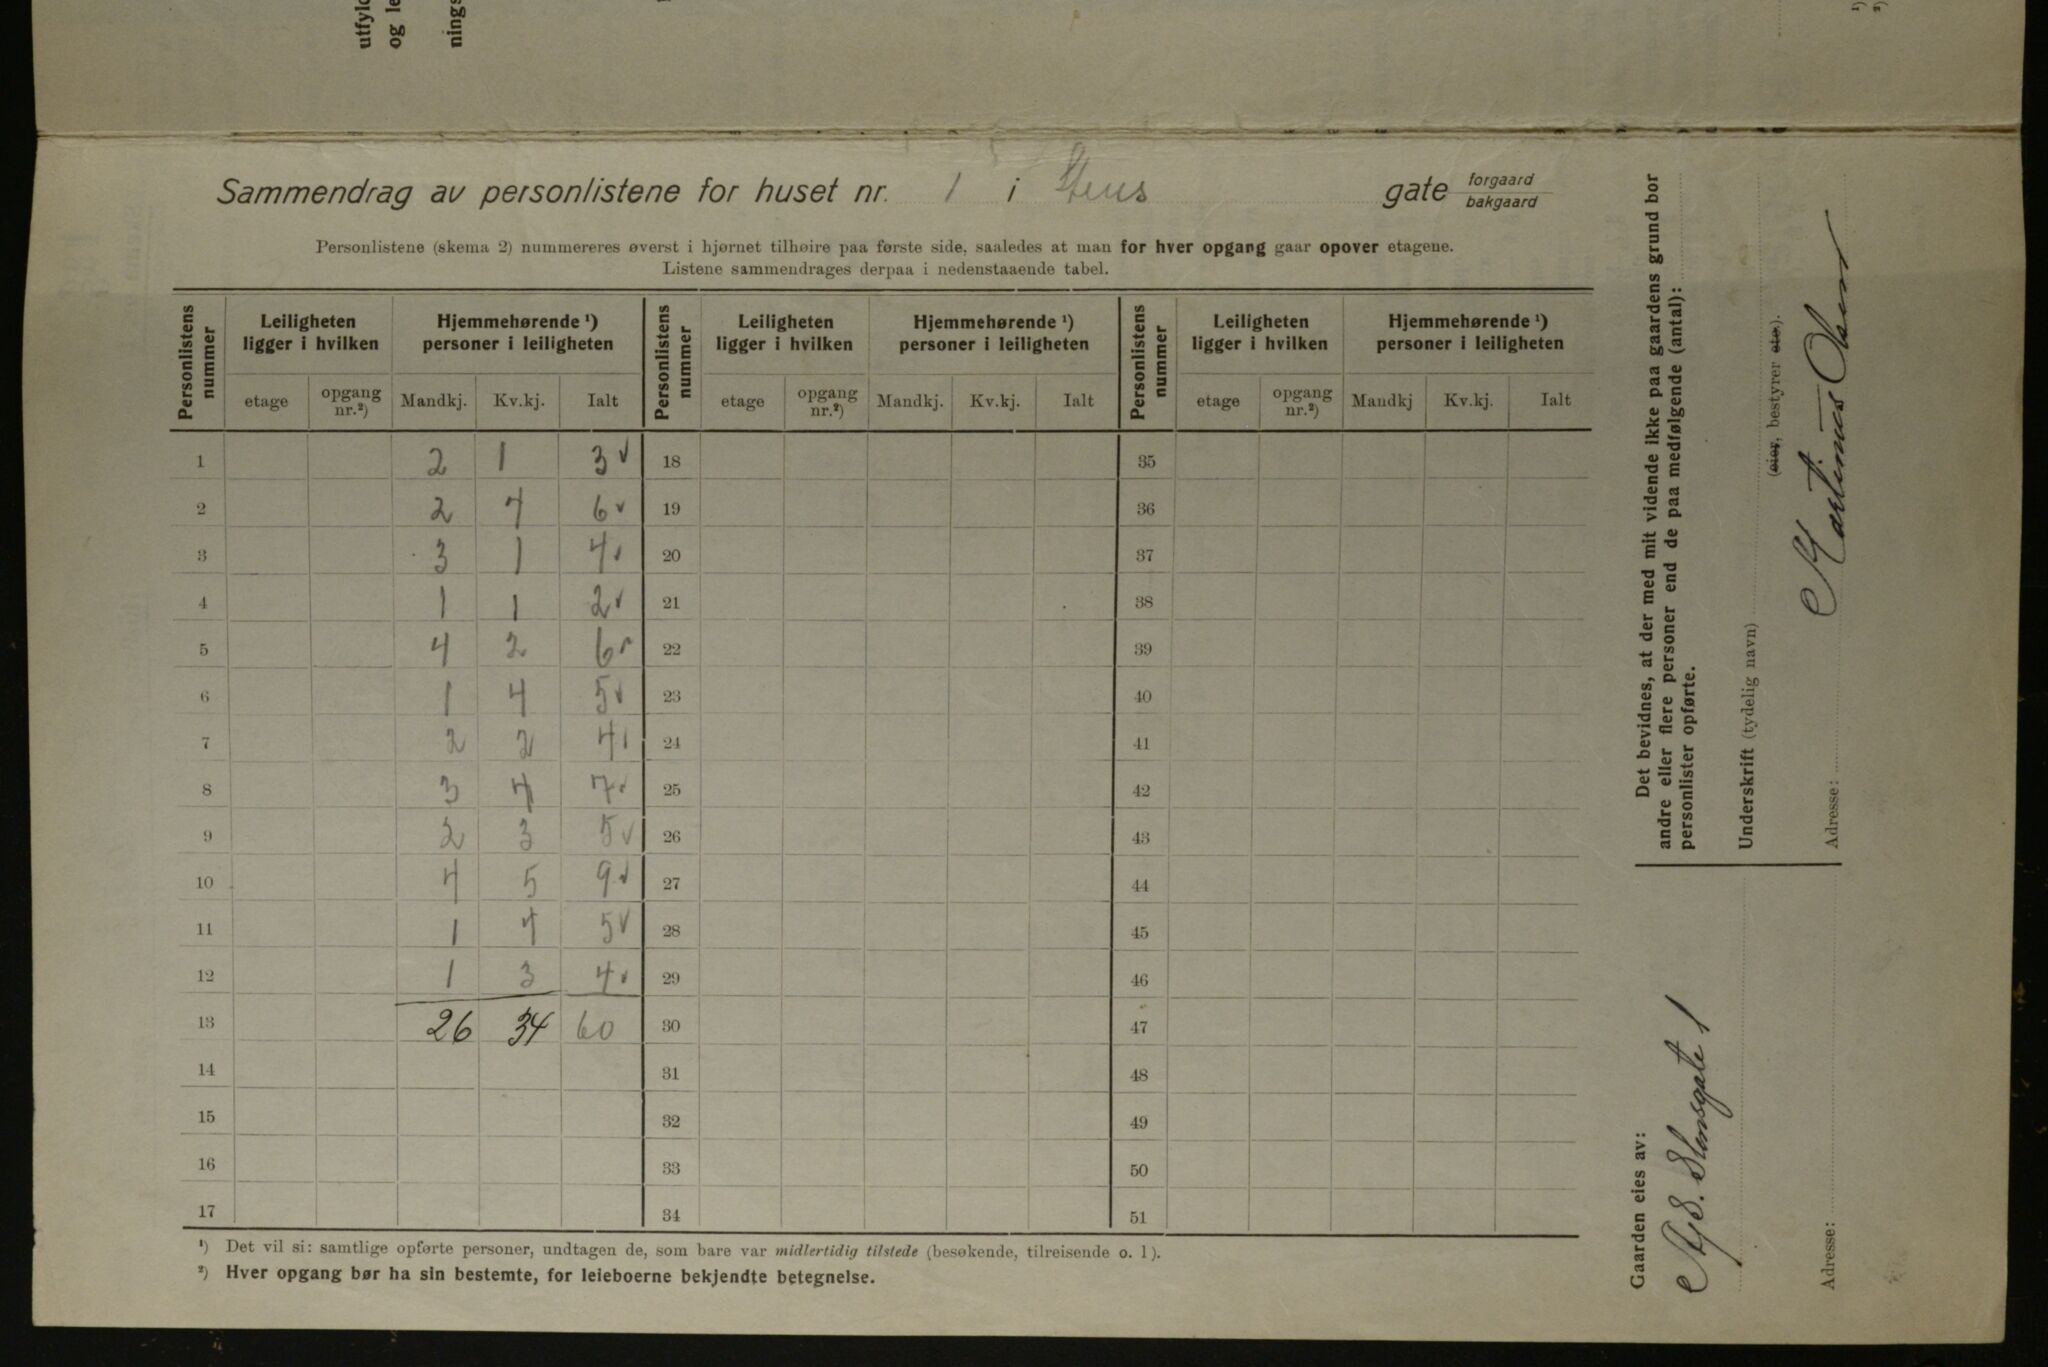 utfyld
og le
nings
¹)
²)
Sammendrag av personlistene for huset nr. 1 i Stens gate forgaard bakgaard
Personlistene (skema 2) nummereres øverst i hjørnet tilhøire paa første side, saaledes at man for hver opgang gaar opover etagene.
Listene sammendrages derpaa i nedenstaaende tabel.
Personlistens nummer | Leiligheten ligger i hvilken | Hjemmehørende ¹) personer i leiligheten | Personlistens nummer | Leiligheten ligger i hvilken | Hjemmehørende ¹) personer i leiligheten | Personlistens nummer | Leiligheten ligger i hvilken | Hjemmehørende ¹) personer i leiligheten
etage | opgang nr.²) | Mandkj. | Kv.kj. | Ialt | etage | opgang nr.²) | Mandkj. | Kv.kj. | Ialt | etage | opgang nr.²) | Mandkj | Kv.kj. | Ialt
1 2 1 3 ✓ 18 35
2 2 4 6 ✓ 19 36
3 3 1 4 ✓ 20 37
4 1 1 2 ✓ 21 38
5 4 2 6 ✓ 22 39
6 1 4 5 ✓ 23 40
7 2 2 4 ✓ 24 41
8 3 4 7 ✓ 25 42
9 2 3 5 ✓ 26 43
10 4 5 9 ✓ 27 44
11 1 4 5 ✓ 28 45
12 1 3 4 ✓ 29 46
13 26 34 60 30 47
14 31 48
15 32 49
16 33 50
17 34 51
¹) Det vil si: samtlige opførte personer, undtagen de, som bare var midlertidig tilstede (besøkende, tilreisende o. l).
²) Hver opgang bør ha sin bestemte, for leieboerne bekjendte betegnelse.
Det bevidnes, at der med mit vidende ikke paa gaardens grund bor
andre eller flere personer end de paa medfølgende (antal):
personlister opførte.
Underskrift (tydelig navn)
(eier, bestyrer etc.).
Martinus Olsen
Adresse:
Gaarden eies av:
A/S. Stensgate 1
Adresse: